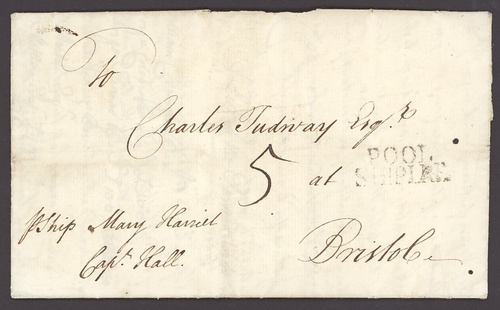 To
Charles Tudway Esq.r
5 at
POOL
SHIP LRE
Bristol
p Ship Mary Harriet
Capt. Hall.